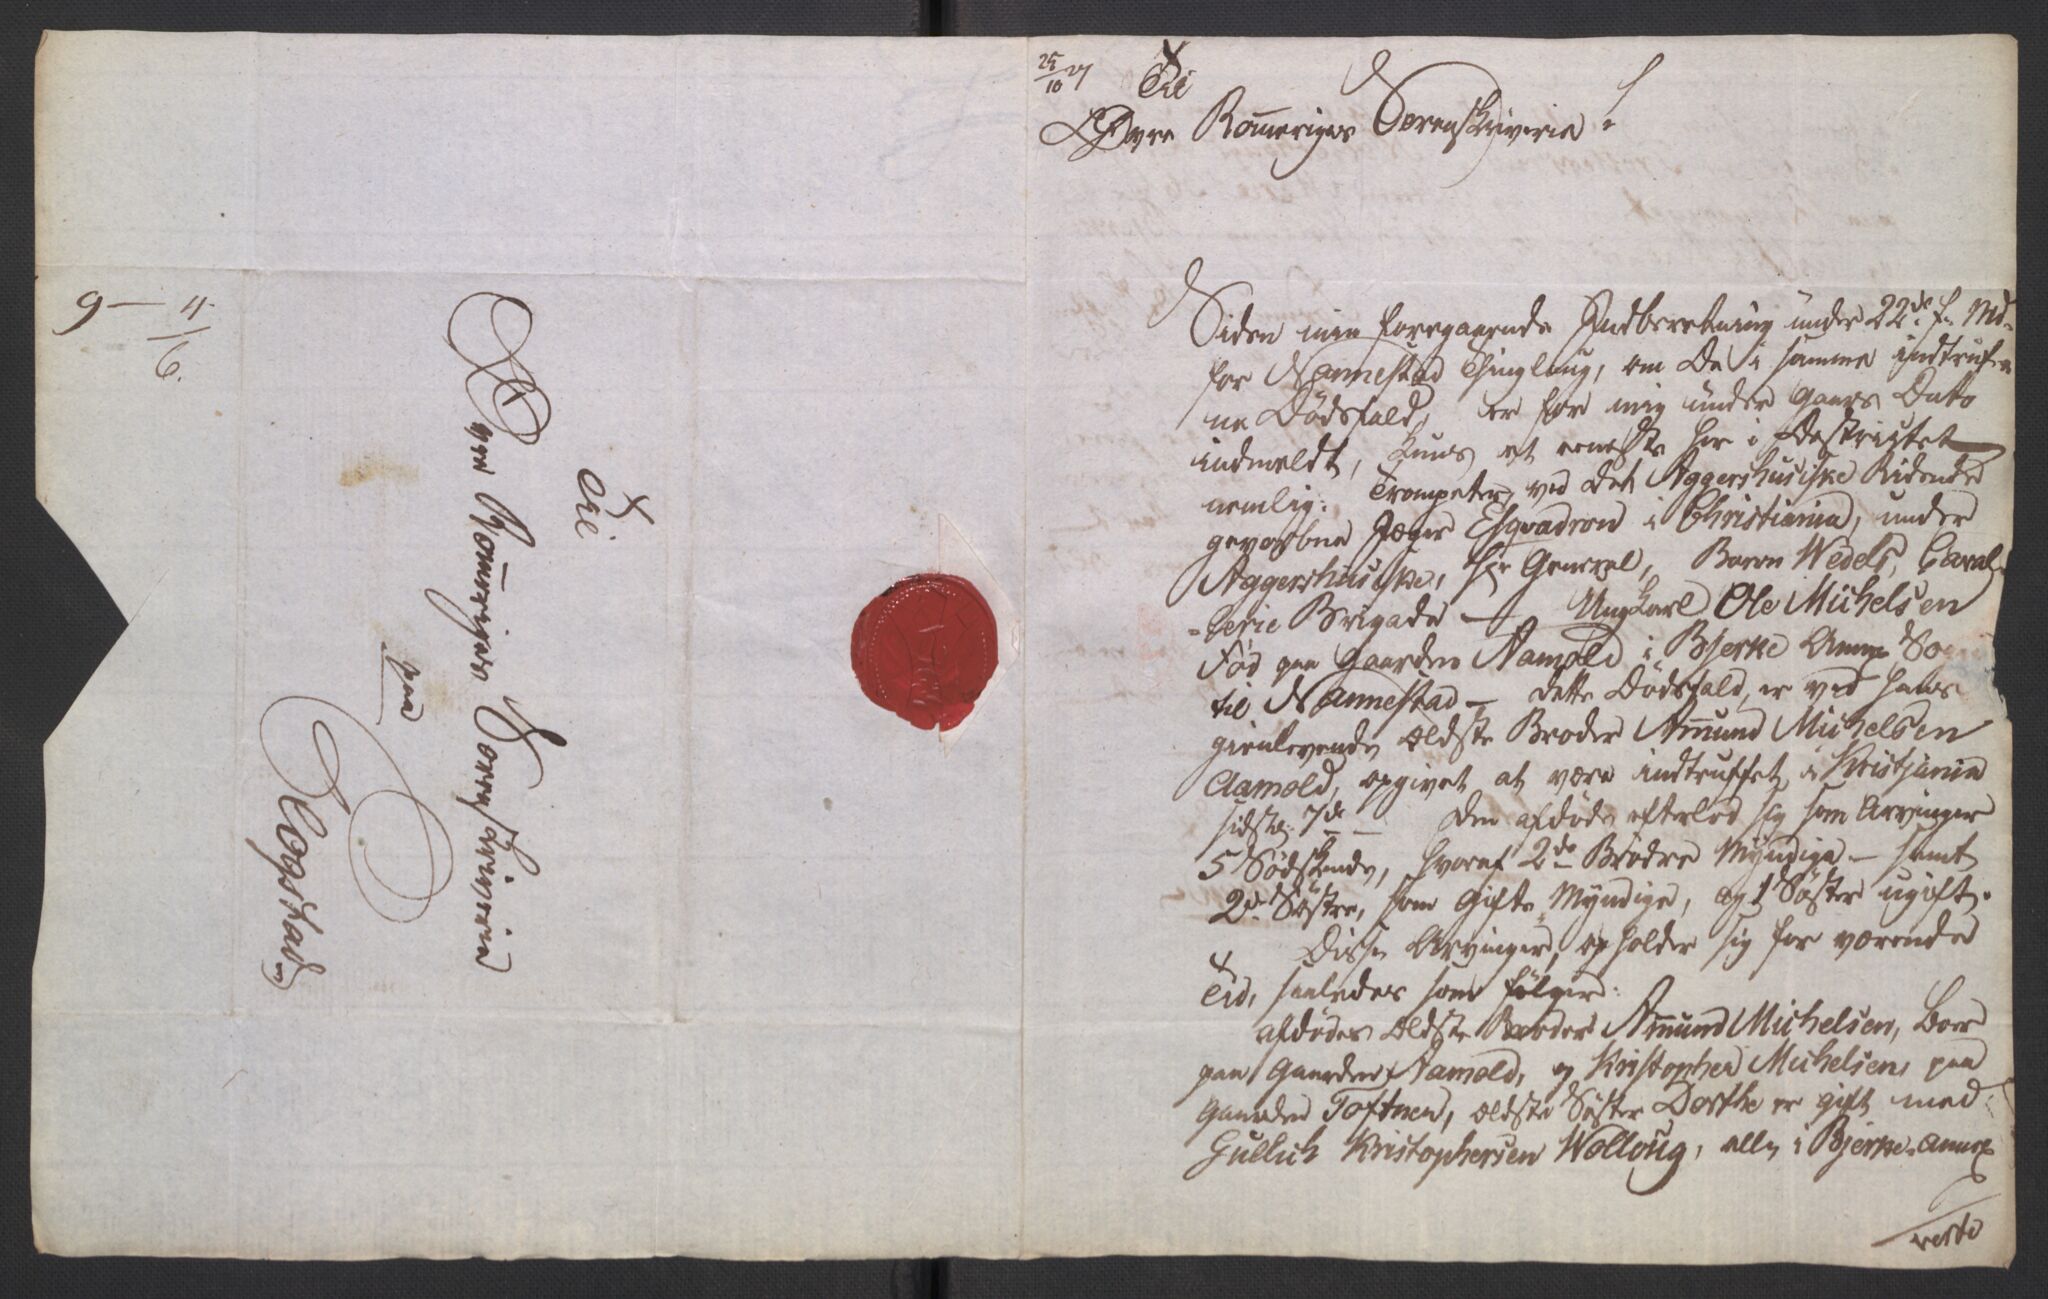 9 — 4/6.
Til
Øvre Romeriges Sorenskriverie
paa
Blogstad
25/10 27
Til
Øvre Romeriges Sorenskriverie
Siden min foregaaende Indberetning under 22de f. Md.
for Nannestad Thinglaug, om De i samme indtrufe-
ne Dødsfald, er for mig under Gaars Datto
indmeldt, kuns et eneste her i Destrictet
nemlig: Trompeter, ved det Aggershusiske Ridende
gevorbne Jæger Esqvadron i Christiania, under
Aggershusiske, Hr General, Baron Wedels, Caval-
-lerie Brigade — Ungkarl Ole Michelsen
Fød paa Gaarden Aamold i Bjerke Annex So
til Nannestad — dette Dødsfald, er ved hans
gienlevende Eldste Broder Amund Michelsen
Aamold, opgivet at være indtruffet i Kristjania
sidste 7de — Den afdøde efterlod sig som Arvinger
5 Sødskende, hvoraf 2de Brødre Myndige — samt
2de Søstre, som Gifte Myndige, og 1 Søster ugift.
Disse Arvinger, opholder sig for værende
Tid, saaledes som følger:
afdødes Eldste Broder Amund Michelsen, Boer
paa Gaarden Aamold, og Kristopher Michelsen, paa
Gaarden Toftnen, Eldste Søster Dorthe er gift med
Gullich Kristophersen Wolloug, alle i Bjerke Annex
verte